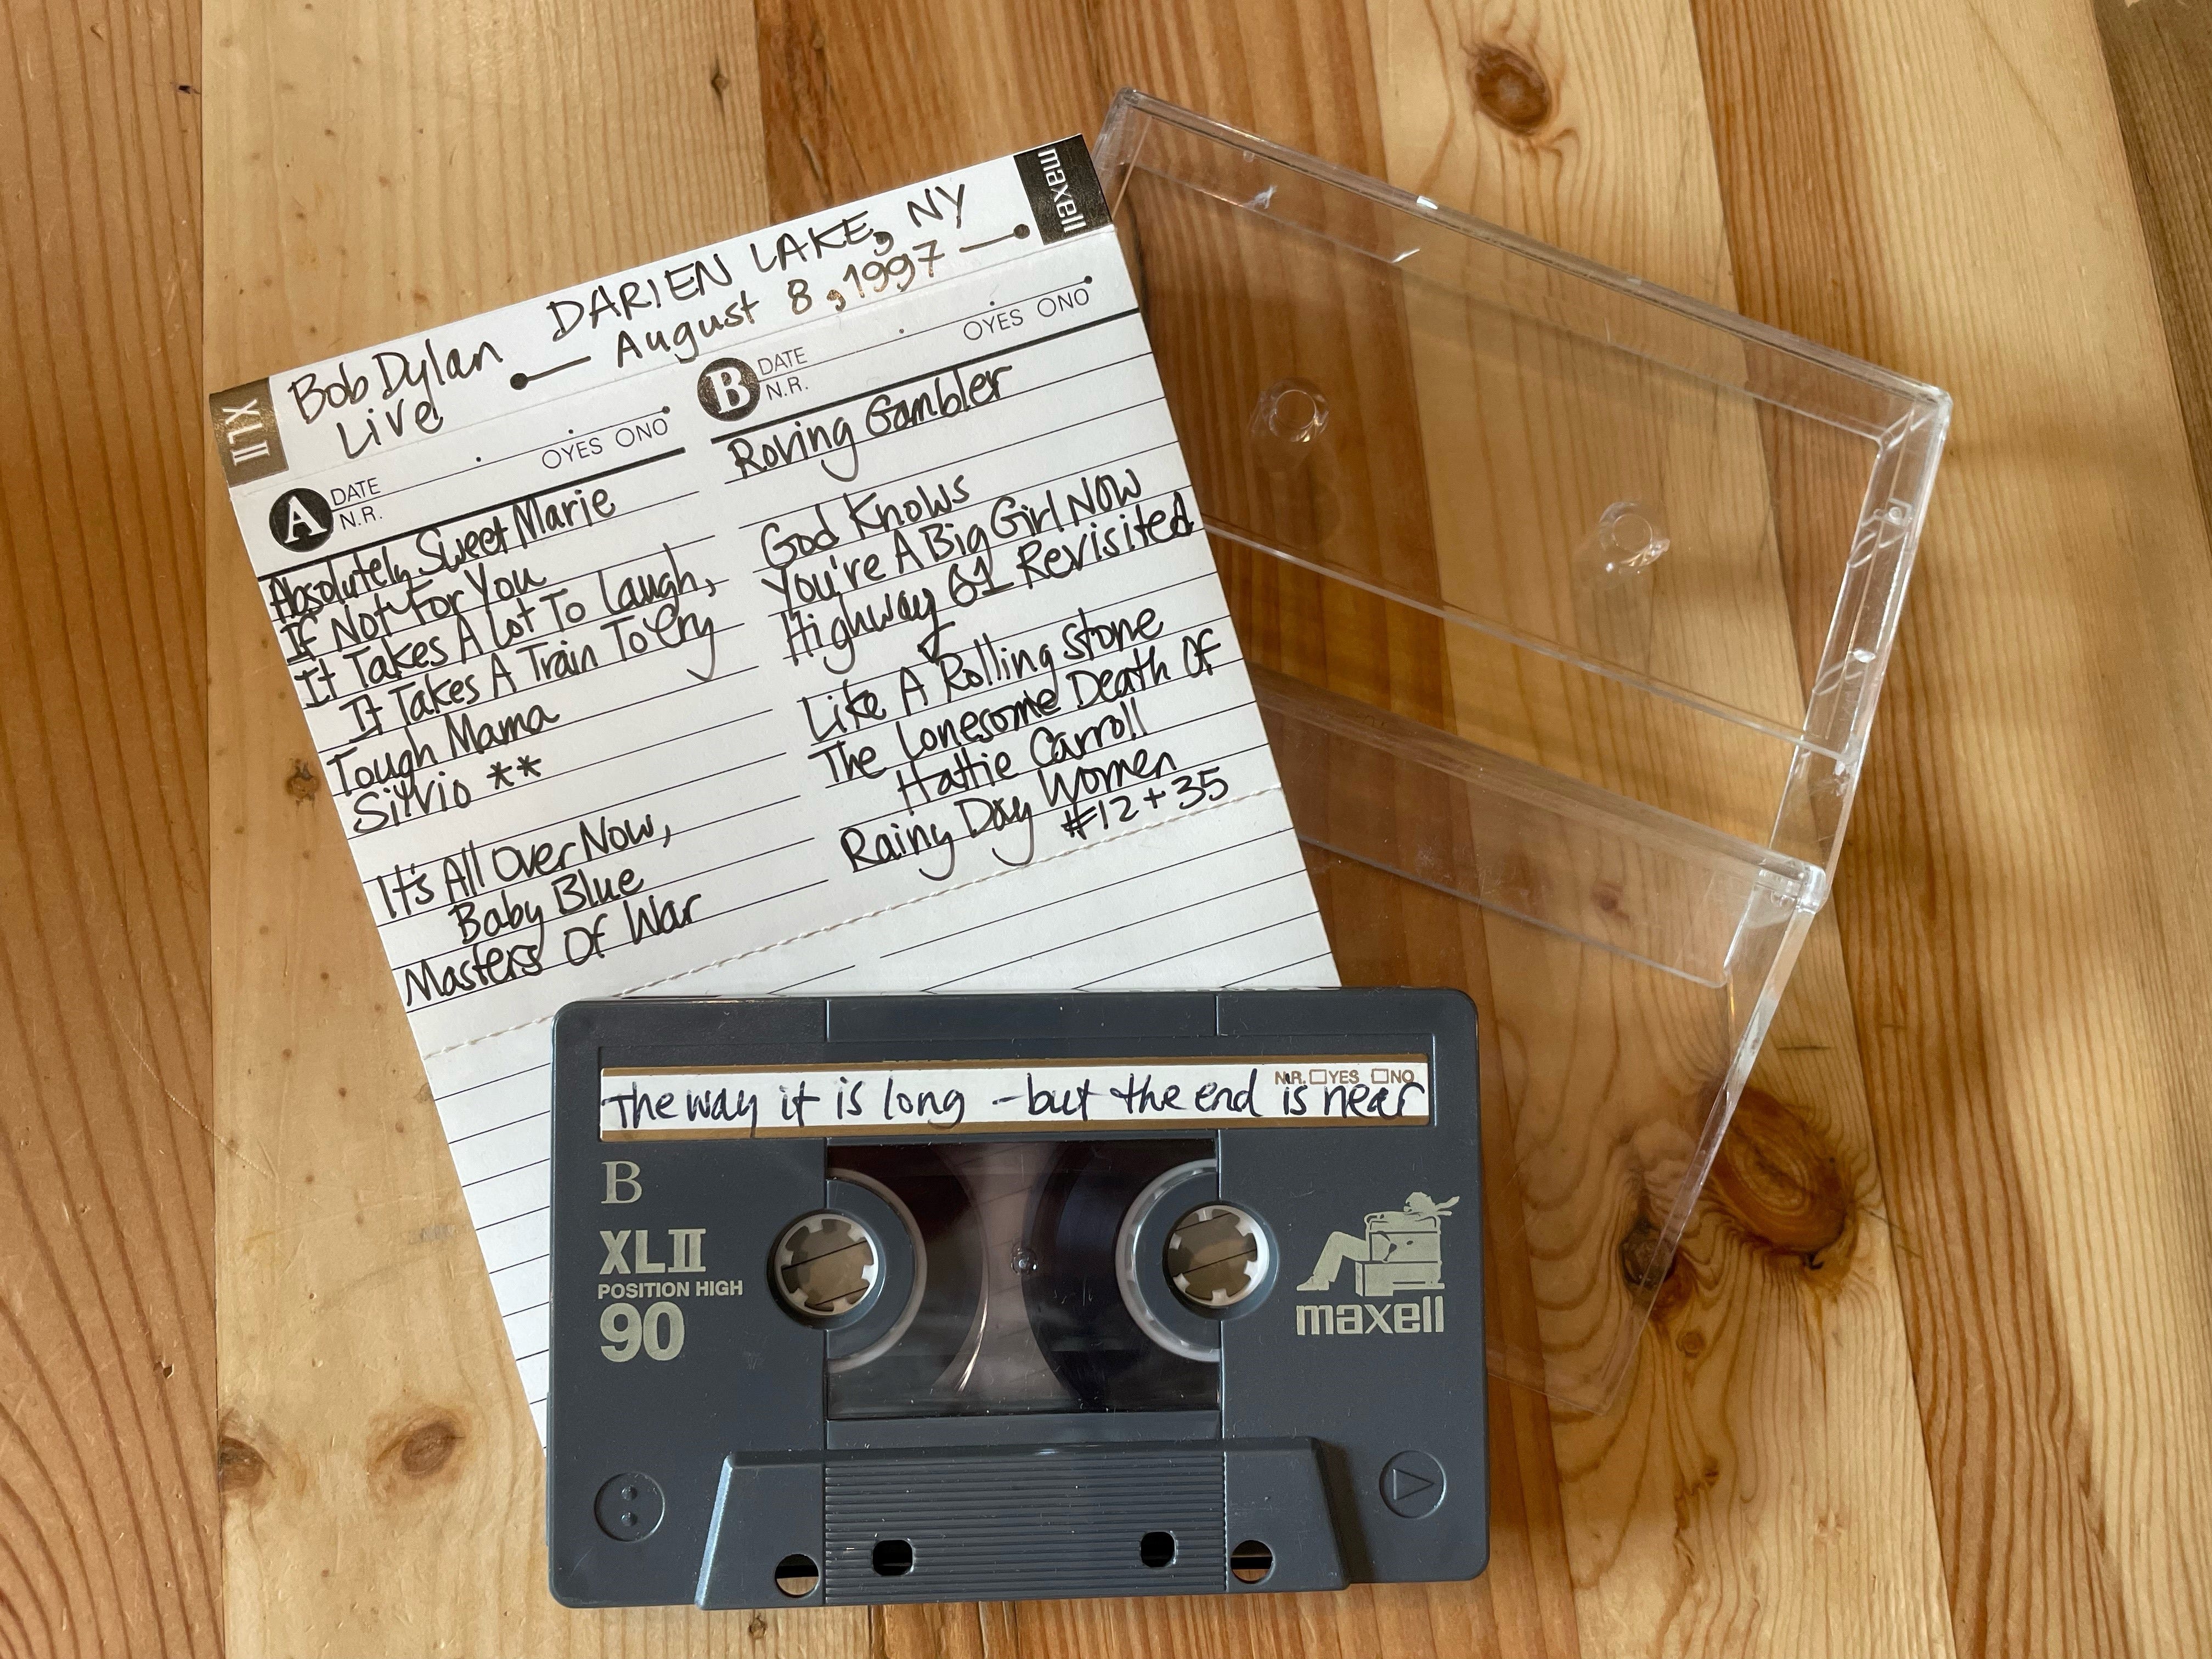 maxell
XLII
Bob Dylan DARIEN LAKE, NY
Live August 8, 1997
A DATE OYES ONO
N.R.
Absolutely Sweet Marie
If Not For You
It Takes A Lot To Laugh,
It Takes A Train To Cry
Tough Mama
Silvio **
It's All Over Now,
Baby Blue
Masters Of War
B DATE OYES ONO
N.R.
Roving Gambler
God Knows
You're A Big Girl Now
Highway 61 Revisited
Like A Rolling Stone
The Lonesome Death Of
Hattie Carroll
Rainy Day Women
#12 + 35
N.R. YES NO
The way it is long - but the end is near
B
XLII
POSITION HIGH
90
maxell